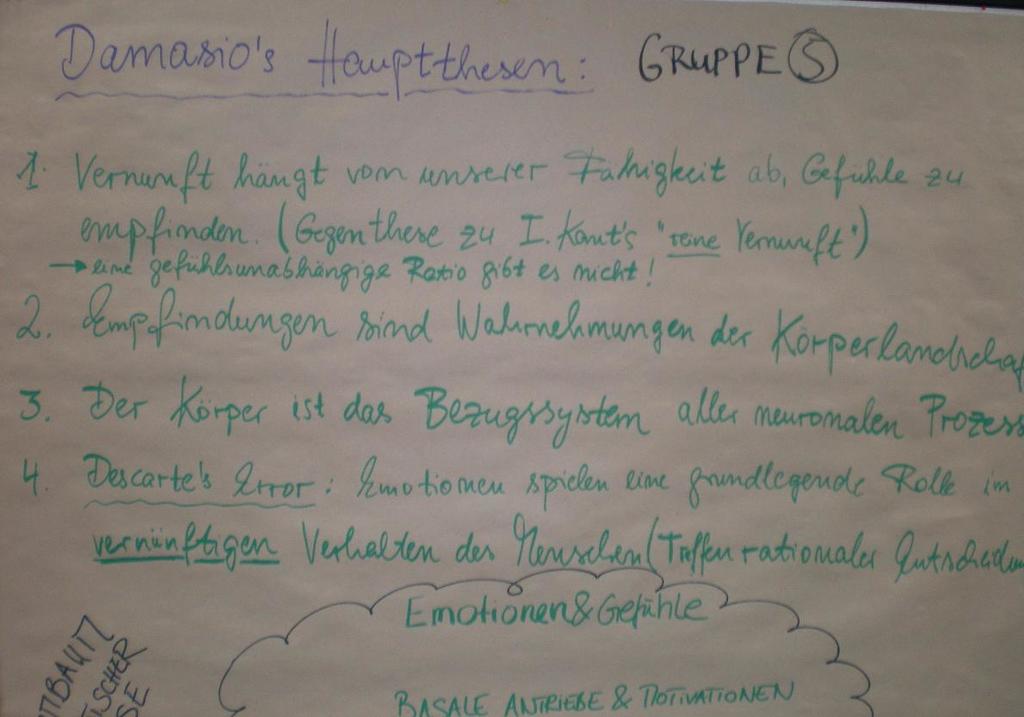 Damasio's Hauptthesen: GRUPPE S
1. Vernunft hängt von unserer Fähigkeit ab, Gefühle zu
empfinden. (Gegenthese zu I. Kant's "reine Vernunft")
→ eine gefühlsunabhängige Ratio gibt es nicht!
2. Empfindungen sind Wahrnehmungen der Körperlandschaf
3. Der Körper ist das Bezugssystem aller neuronalen Prozess
4. Descarte's Error: Emotionen spielen eine grundlegende Rolle im
vernünftigen Verhalten des Menschen (Treffen rationaler Entscheidun
Emotionen & Gefühle
BASALE ANTRIEBE & MOTIVATIONEN